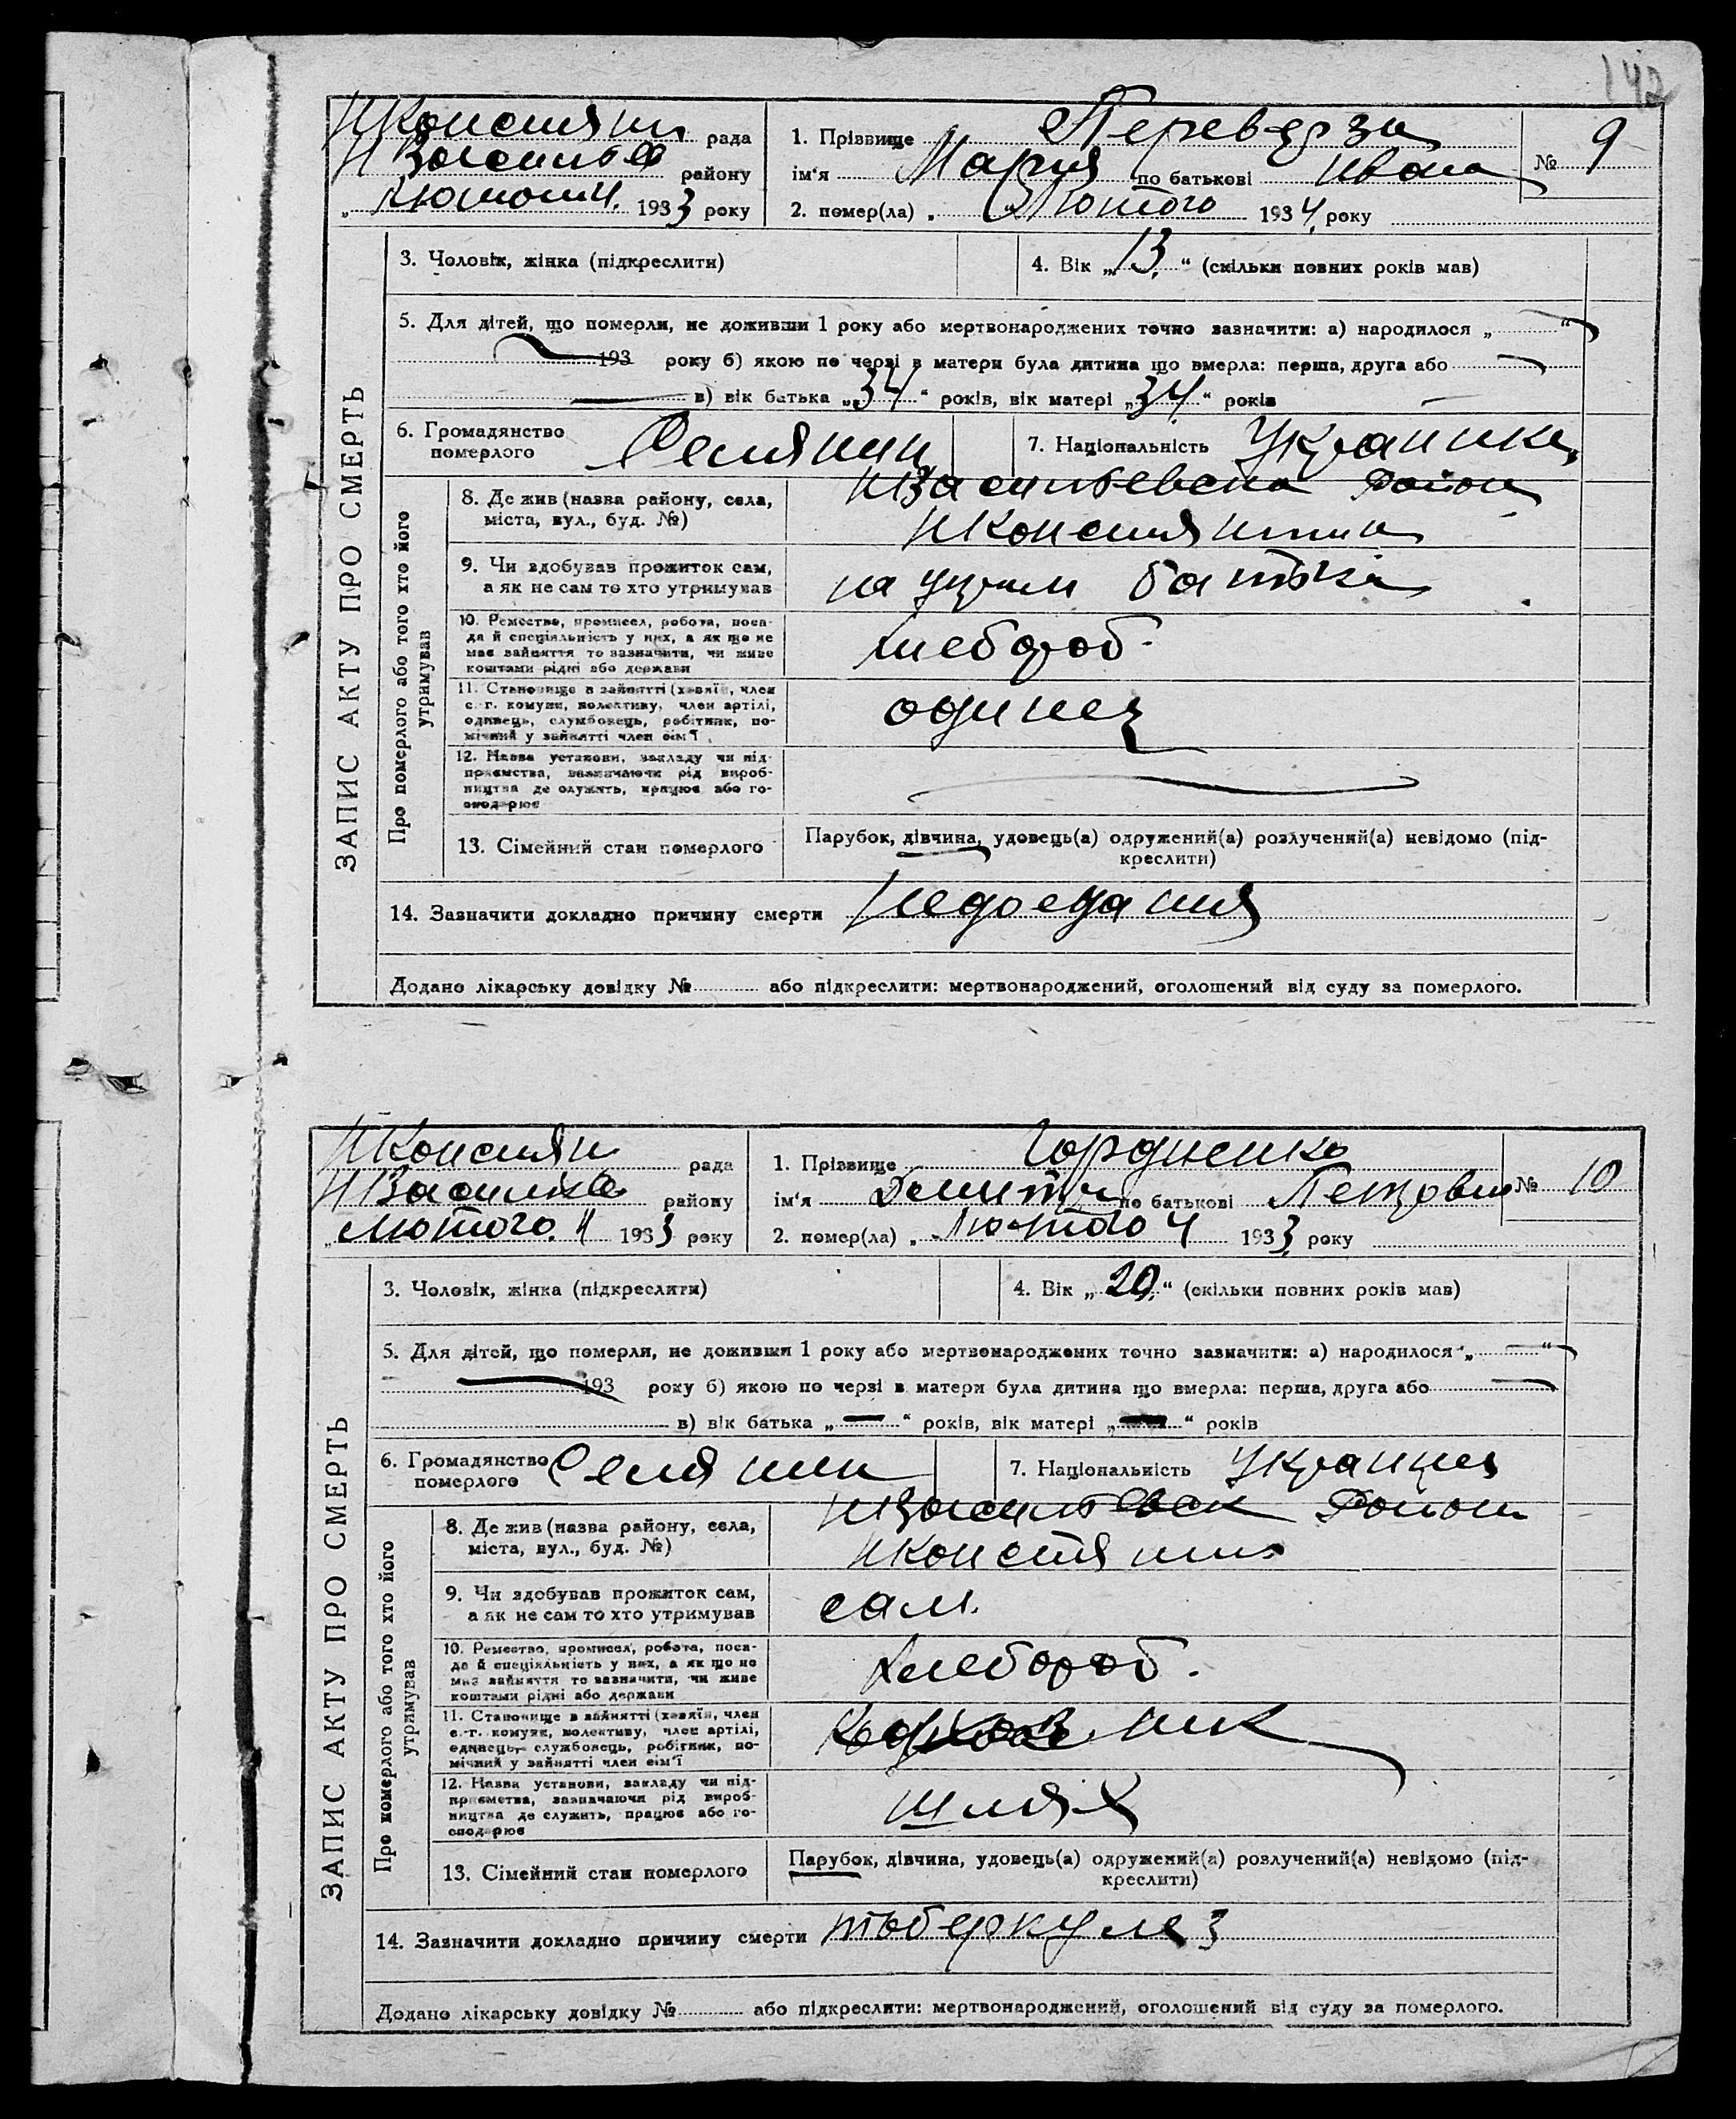 142
НКонстян рада
НВасильев району
„ Лютого 4. 1933 року
1. Прізвище Переверза
ім'я Мария по батькові Ивана
№ 9
2. помер(ла) „ Лютого 1934, року
ЗАПИС АКТУ ПРО СМЕРТЬ
3. Чоловік, жінка (підкреслити)
4. Вік „13.“ (скільки повних років мав)
5. Для дітей, що померли, не доживши 1 року або мертвонароджених точно зазначити: а) народилося „ “
193 року б) якою по черзі в матери була дитина що вмерла: перша, друга або
в) вік батька „34“ років, вік матері „34“ років
6. Громадянство померлого Селянин
7. Національність Украинка
Про померлого або того хто його утримував
8. Де жив (назва району, села, міста, вул., буд. №)
НВасильевська Район
НКонстянтин
9. Чи здобував прожиток сам, а як не сам то хто утримував
на утрим батька
10. Ремество, промисел, робота, посада й спеціяльність у них, а як що не має зайняття то зазначити, чи живе коштами рідні або держави
хлебороб
11. Становище в зайнятті (хазяїн, член с.-г. комуни, колективу, член артілі, одинець, службовець, робітник, помічний у зайнятті член сім'ї
одинец
12. Назва установи, закладу чи підприємства, зазначаючи рід виробництва де служить, працює або господарює
13. Сімейний стан померлого
Парубок, дівчина, удовець(а) одружений(а) розлучений(а) невідомо (підкреслити)
14. Зазначити докладно причину смерти Недоедания
Додано лікарську довідку № або підкреслити: мертвонароджений, оголошений від суду за померлого.
НКонстян рада
НВасильев району
„Лютого. 4 1933 року
1. Прізвище Гордиенко
ім'я Дмитр по батькові Петрович
№ 10
2. помер(ла) „ Лютого 4 1933, року
ЗАПИС АКТУ ПРО СМЕРТЬ
3. Чоловік, жінка (підкреслити)
4. Вік „20.“ (скільки повних років мав)
5. Для дітей, що померли, не доживши 1 року або мертвонароджених точно зазначити: а) народилося „ “
193 року б) якою по черзі в матери була дитина що вмерла: перша, друга або
в) вік батька „—“ років, вік матері „—“ років
6. Громадянство померлого Селянин
7. Національність Украинец
Про померлого або того хто його утримував
8. Де жив (назва району, села, міста, вул., буд. №)
НВасильевск Район
НКонстянтин
9. Чи здобував прожиток сам, а як не сам то хто утримував
сам.
10. Ремество, промисел, робота, посада й спеціяльність у них, а як що не має зайняття то зазначити, чи живе коштами рідні або держави
хлебороб.
11. Становище в зайнятті (хазяїн, член с.-г. комуни, колективу, член артілі, одинець, службовець, робітник, помічний у зайнятті член сім'ї
12. Назва установи, закладу чи підприємства, зазначаючи рід виробництва де служить, працює або господарює
шлях
13. Сімейний стан померлого
Парубок, дівчина, удовець(а) одружений(а) розлучений(а) невідомо (підкреслити)
14. Зазначити докладно причину смерти тоберкулез
Додано лікарську довідку № або підкреслити: мертвонароджений, оголошений від суду за померлого.